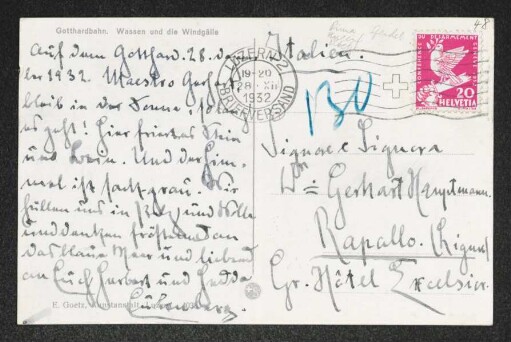 Gotthardbahn. Wassen und die Windgälle
Auf dem Gotthard. 28. de
ber 1932. Maestro Gerhart
bleib in der Sonne, solang
es geht! Hier friert es Stein
und Bein. Und der Him-
mel ist sack-grau. Wir
hüllen uns in Pelz und Wolle
und denken fröstelnd an
das blaue Meer und liebend
an Euch Herbert und Hedda
Eulenberg.
E. Goetz, Kunstanstalt, Luzern.
LUZERN 2
19-20
28.XII
1932
BRIEFVERSAND
48
CONFÉRENCE DU DÉSARMEMENT
20
HELVETIA
Italien.
130
Signore e Signora
Dr = Gerhart Hauptmann
Rapallo. (Liguria
Gr. Hôtel Excelsior.